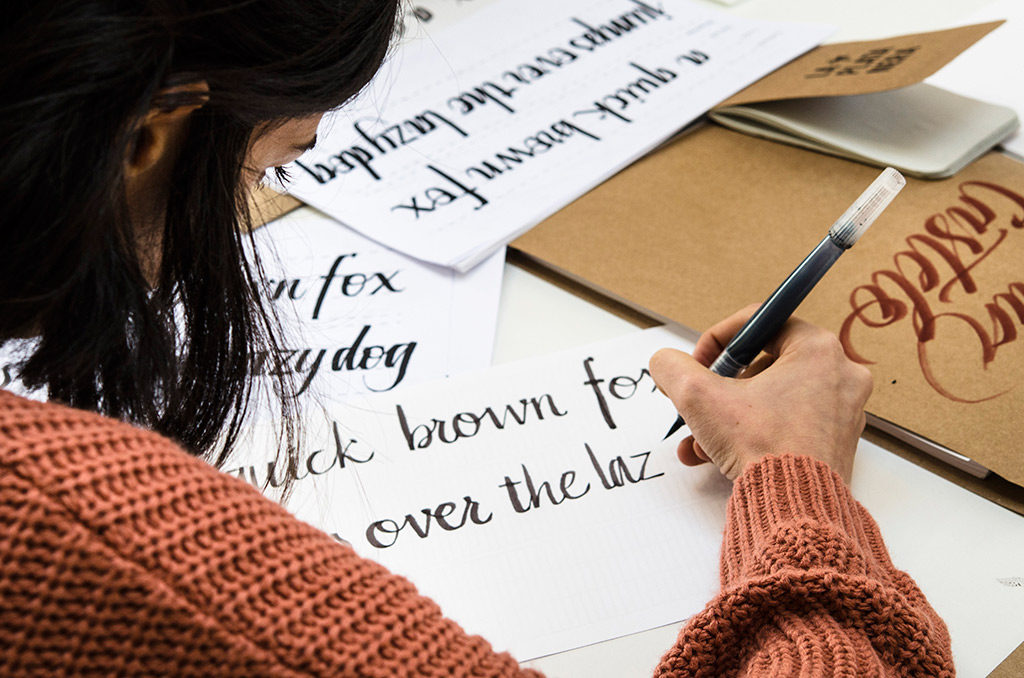 a quick brown fox
jumps over the lazy dog
fox
dog
quick brown fox
over the laz